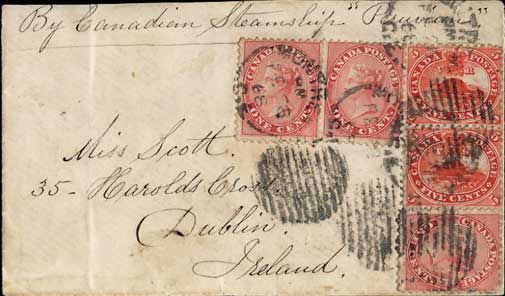 By Canadian Steamship "Peruvian"
CANADA POSTAGE
ONE CENT
CANADA POSTAGE
ONE CENT
CANADA POSTAGE
FIVE CENTS
CANADA POSTAGE
FIVE CENTS
CANADA POSTAGE
Miss Scott.
35- Harolds Cross.
Dublin.
Ireland.